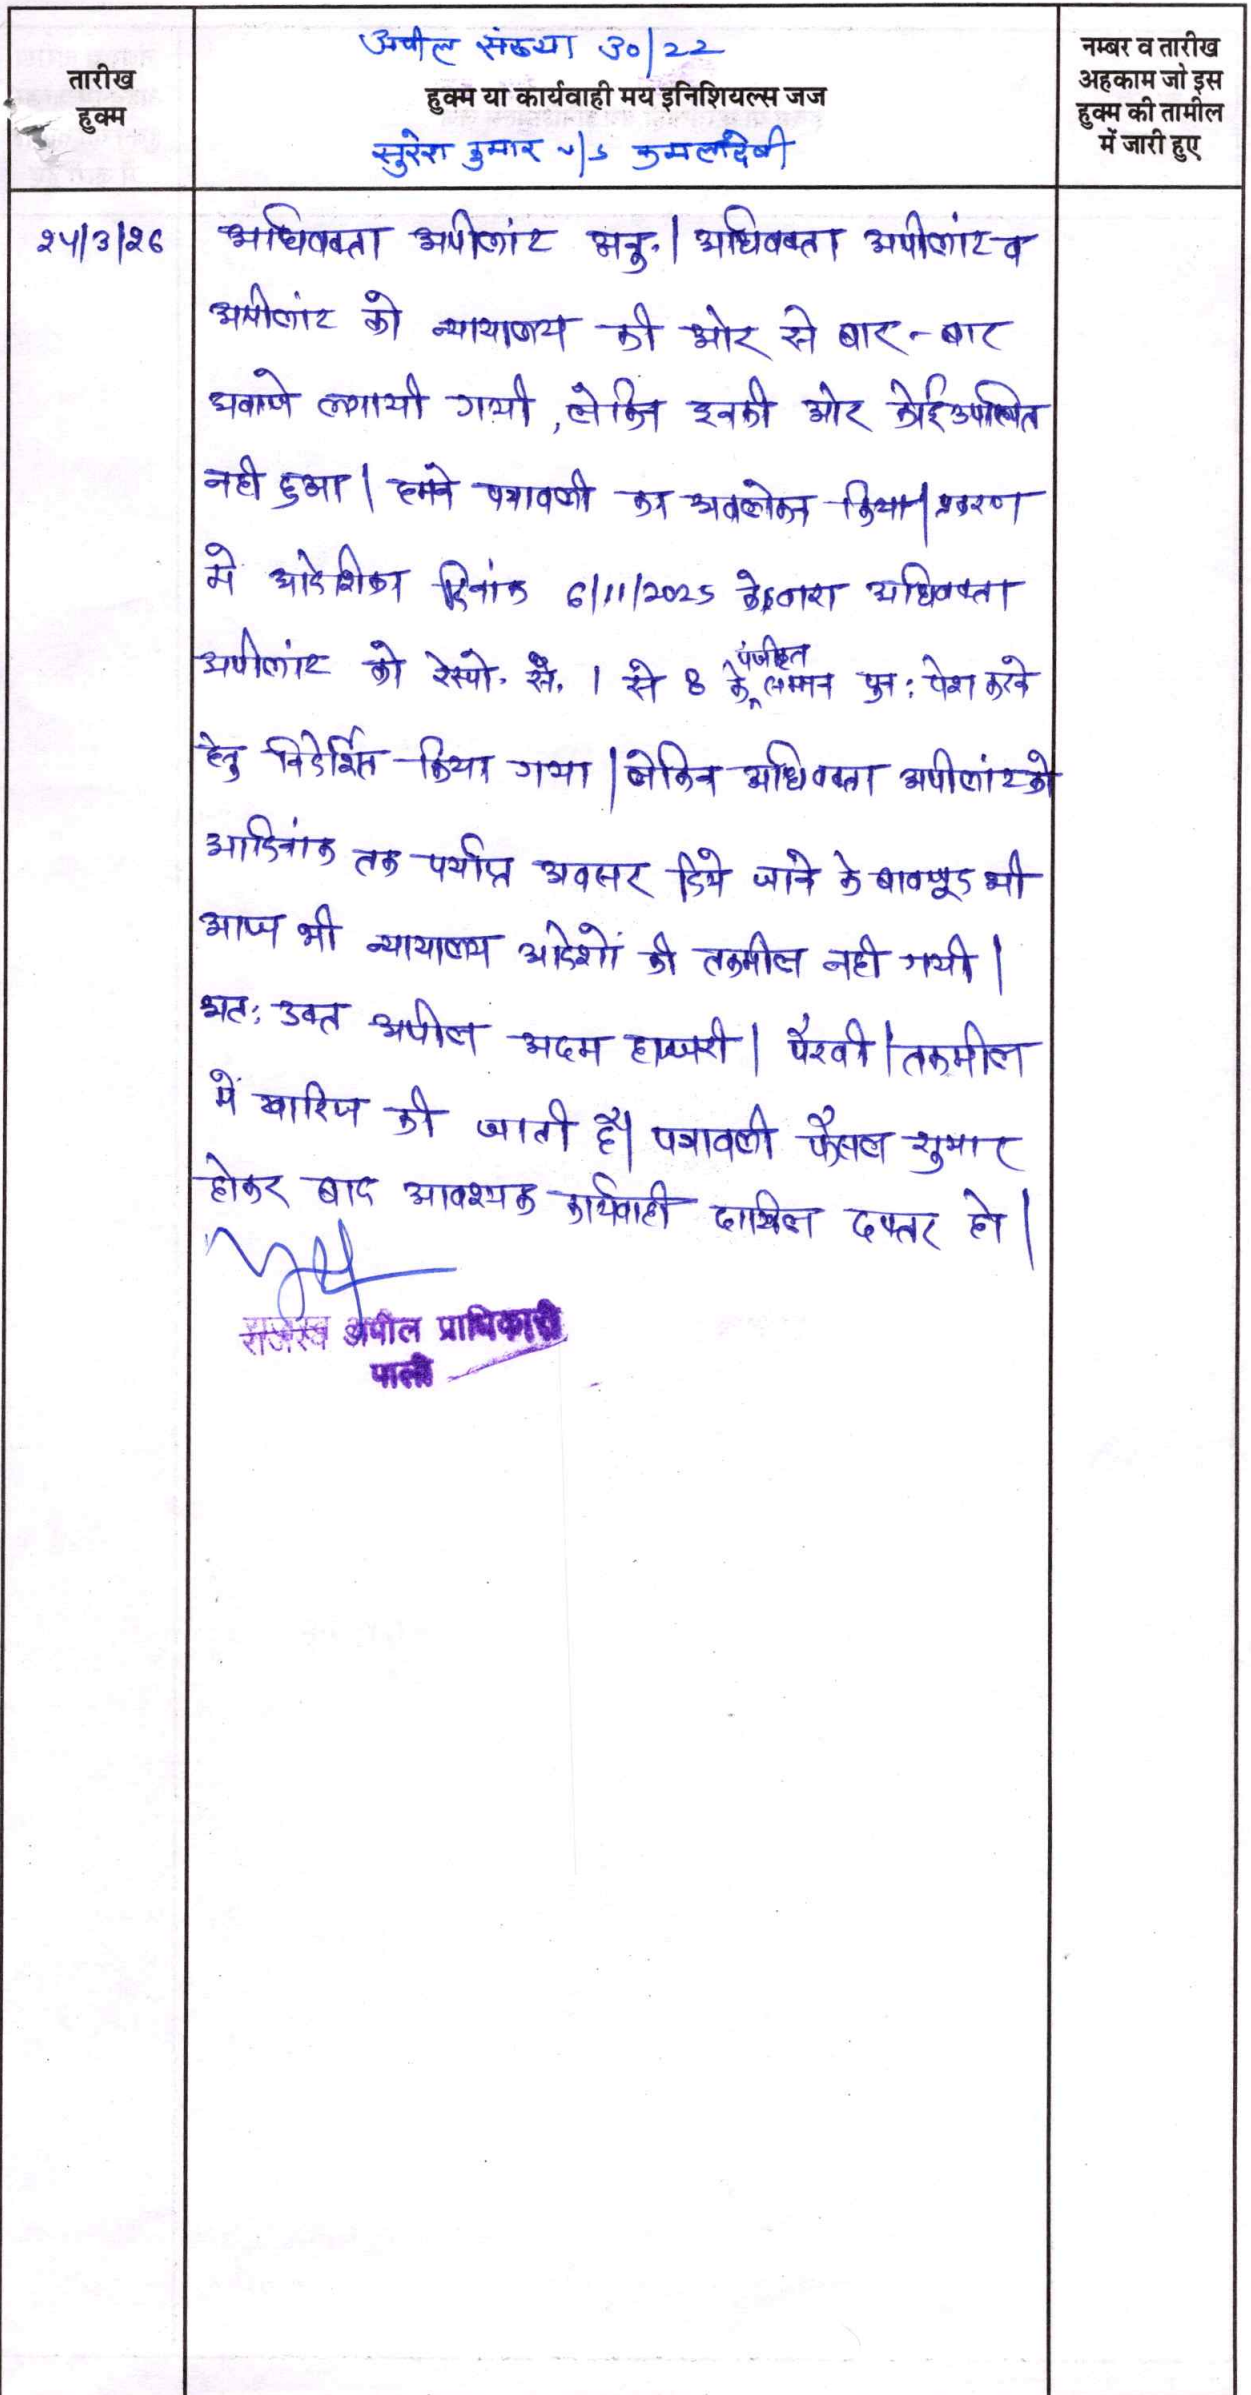 अपील संख्या 30/22
तारीख
हुक्म
हुक्म या कार्यवाही मय इनिशियल्स जज
सुरेश कुमार v/s कमलादेवी
नम्बर व तारीख
अहकाम जो इस
हुक्म की तामील
में जारी हुए
२५/3/२६ अधिवक्ता अपीलांट अनु.। अधिवक्ता अपीलांट व
अपीलांट को न्यायालय की ओर से बार-बार
अवाजे लगायी गयी, लेकिन इनकी ओर कोई उपस्थित
नही हुआ। हमने पत्रावली का अवलोकन किया। प्रकरण
मे आदेशिका दिनांक 6/11/2025 के द्वारा अधिवक्ता
अपीलांट को रेस्पो. सं. 1 से 8 के पंजीकृत सम्मन पुन: पेश करने
हेतु निर्देशित किया गया। लेकिन अधिवक्ता अपीलांट को
आदिनांक तक पर्याप्त अवसर दिये जाने के बावजूद भी
आज भी न्यायालय आदेशों की तकमील नही गयी।
अत: उक्त अपील अदम हाजरी। पैरवी। तकमील
में खारिज की जाती है। पत्रावली फैसल शुमार
होकर बाद आवश्यक कार्यवाही दाखिल दफ्तर हो।
राजस्व अपील प्राधिकारी
पाली